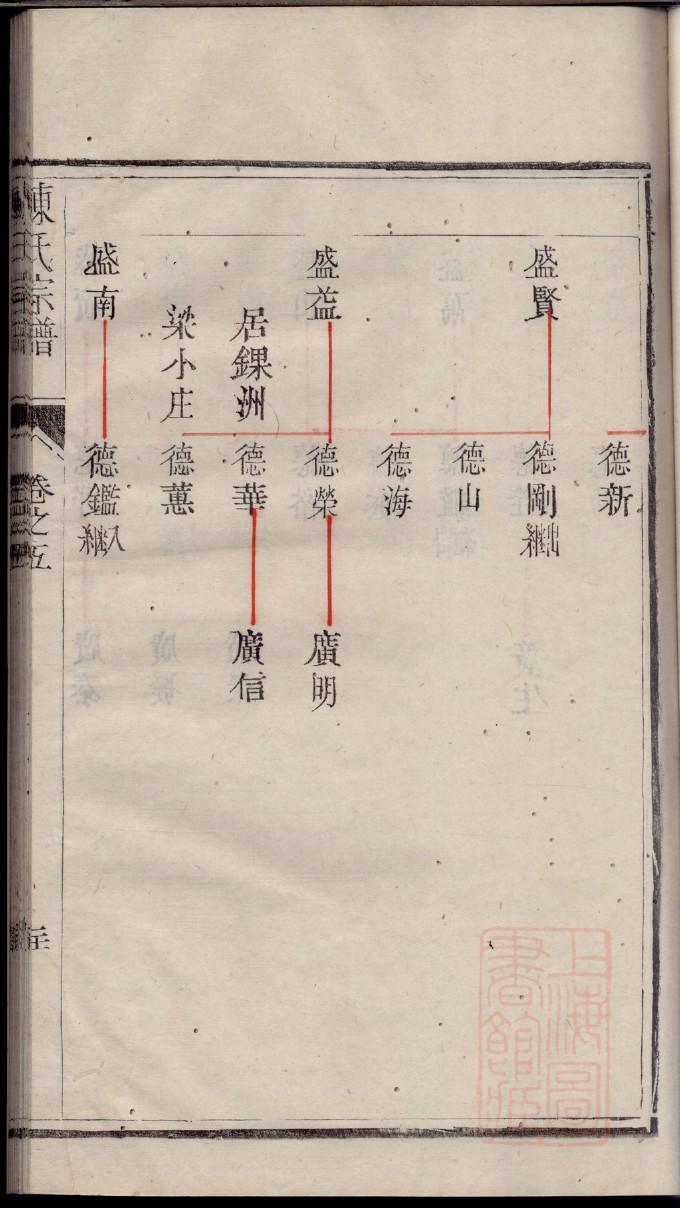 德新
盛賢
德剛出繼
德山
德海
盛益
德榮
廣明
居錁洲
德華
廣信
梁小庄
德蕙
盛南
德鑑入繼
陳氏宗譜
卷之五
上海圖書館藏